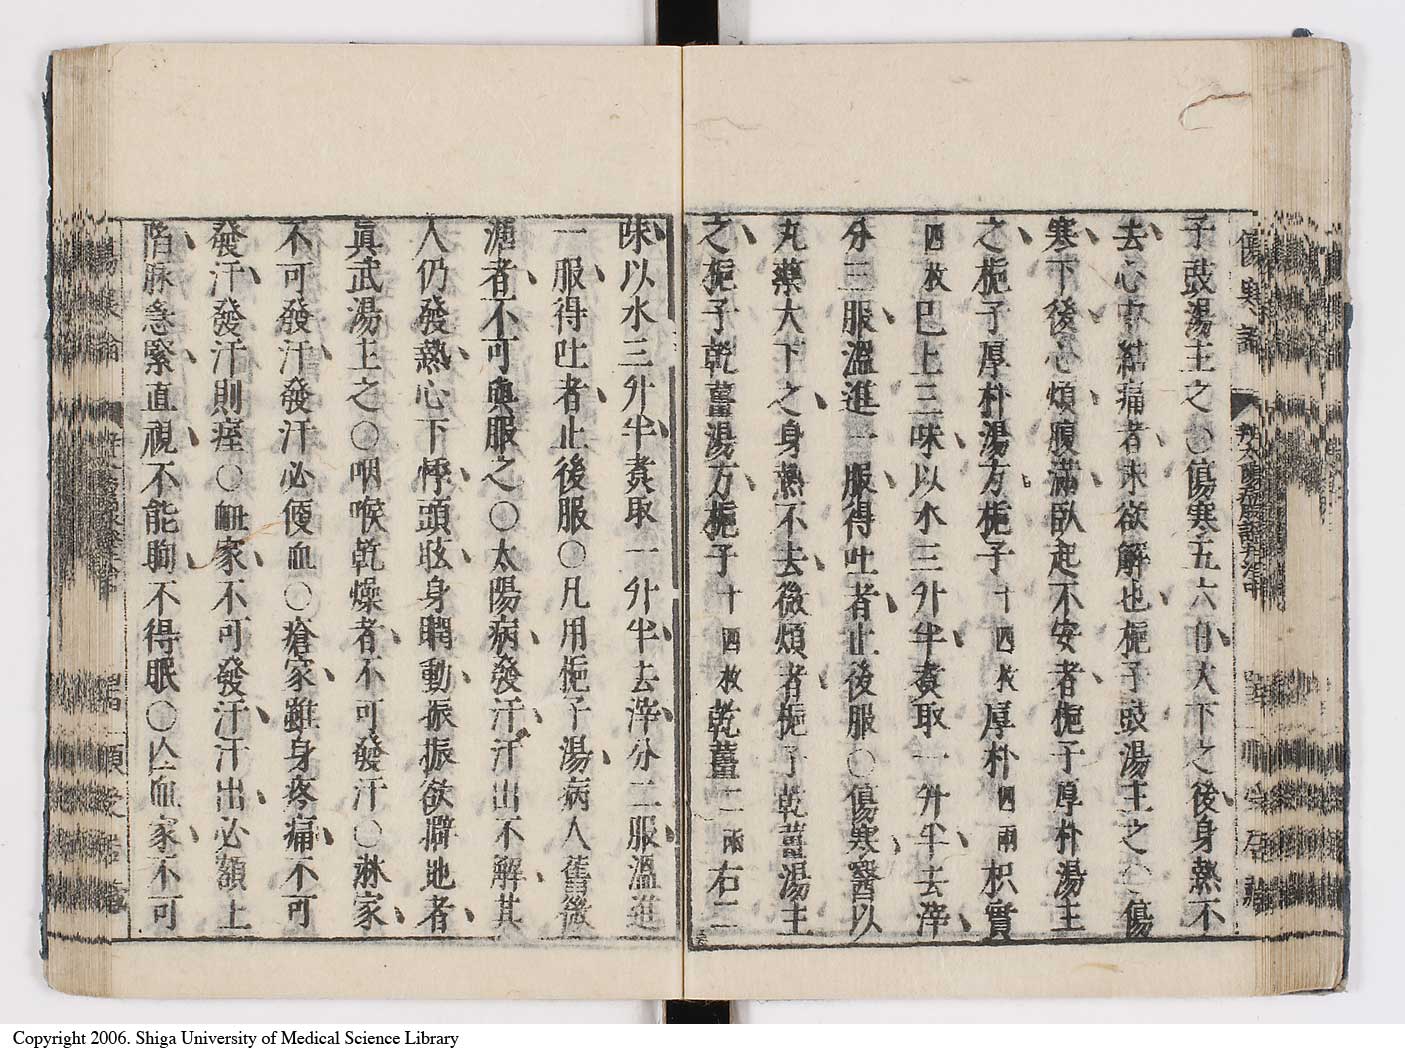 子豉湯主之○傷寒五六日大下之後身熱不
去心中結痛者未欲解也梔子豉湯主之○傷
寒下後心煩腹滿臥起不安者梔子厚朴湯主
之梔子厚朴湯方梔子十四枚厚朴四兩枳實
四枚已上三味以水三升半煑取一升半去滓
分三服溫進一服得吐者止後服○傷寒醫以
丸藥大下之身熱不去微煩者梔子乾薑湯主
之梔子乾薑湯方梔子十四枚乾薑二兩右二
味以水三升半煑取一升半去滓分二服溫進
一服得吐者止後服○凡用梔子湯病人舊微
溏者不可與服之○太陽病發汗汗出不解其
人仍發熱心下悸頭眩身瞤動振振欲擗地者
眞武湯主之○咽喉乾燥者不可發汗○淋家
不可發汗發汗必便血○瘡家雖身疼痛不可
發汗發汗則痓○衄家不可發汗汗出必額上
陷脉急緊直視不能眴不得眠○亾血家不可
Copyright 2006. Shiga University of Medical Science Library